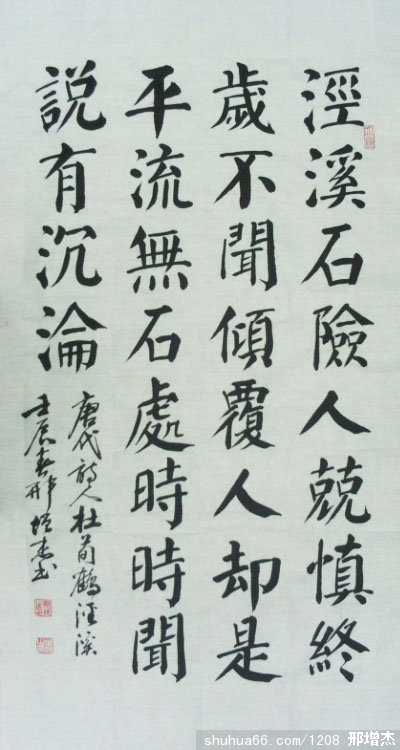 涇溪石險人兢慎終
歲不聞傾覆人却是
平流無石處時時聞
說有沉淪
唐代詩人杜荀鶴涇溪
壬辰春邢增杰书
shuhua66.com/1208 邢增杰